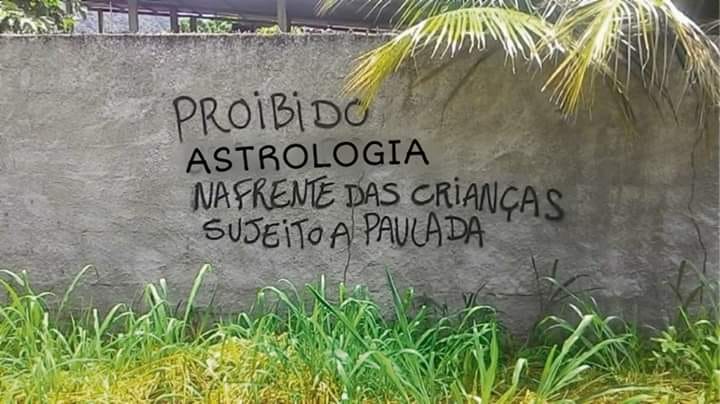 PROIBIDO
ASTROLOGIA
NA FRENTE DAS CRIANÇAS
SUJEITO A PAULADA